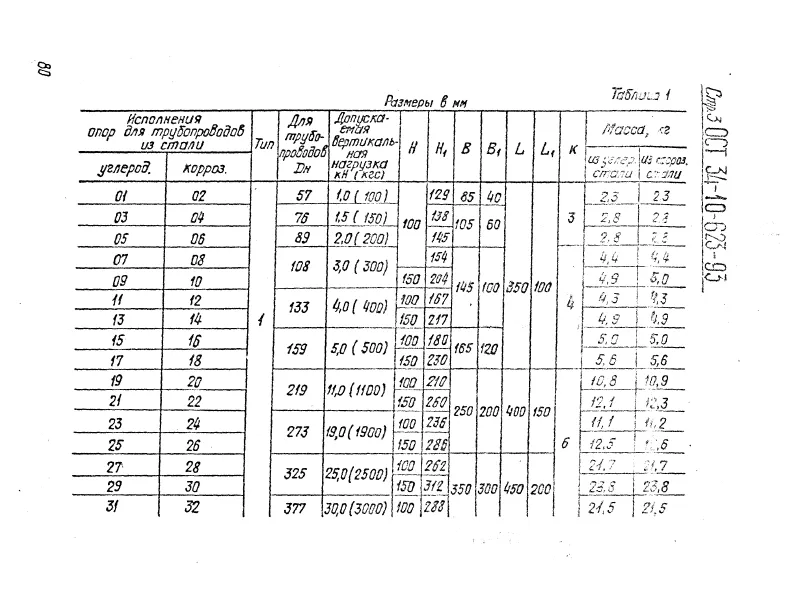 80
Стр.3 ОСТ 34-10-623-93
Размеры в мм
Таблица 1
Исполнения опор для трубопроводов из стали | Тип | Для трубопроводов Dн | Допускаемая вертикальная нагрузка кН (кгс) | H | H₁ | B | B₁ | L | L₁ | К | Масса, кг
углерод. | корроз. | из углер. стали | из корроз. стали
01 02 1 57 1,0 (100) 100 129 85 40 350 100 3 2,3 2,3
03 04 76 1,5 (150) 138 105 60 2,8
05 06 89 2,0 (200) 145 2,8
07 08 108 3,0 (300) 154 145 100 4 4,4 4,4
09 10 150 204 4,9 5,0
11 12 133 4,0 (400) 100 167 4,3 4,3
13 14 150 217 4,9 4,9
15 16 159 5,0 (500) 100 180 165 120 5,0 5,0
17 18 150 230 5,6 5,6
19 20 219 11,0 (1100) 100 210 250 200 400 150 6 10,8 10,9
21 22 150 260 12,1 12,3
23 24 273 19,0 (1900) 100 236 11,1
25 26 150 286 12,5
27 28 325 25,0 (2500) 100 262 350 300 450 200 21,7 21,7
29 30 150 312 23,8 23,8
31 32 377 30,0 (3000) 100 288 21,5 21,5